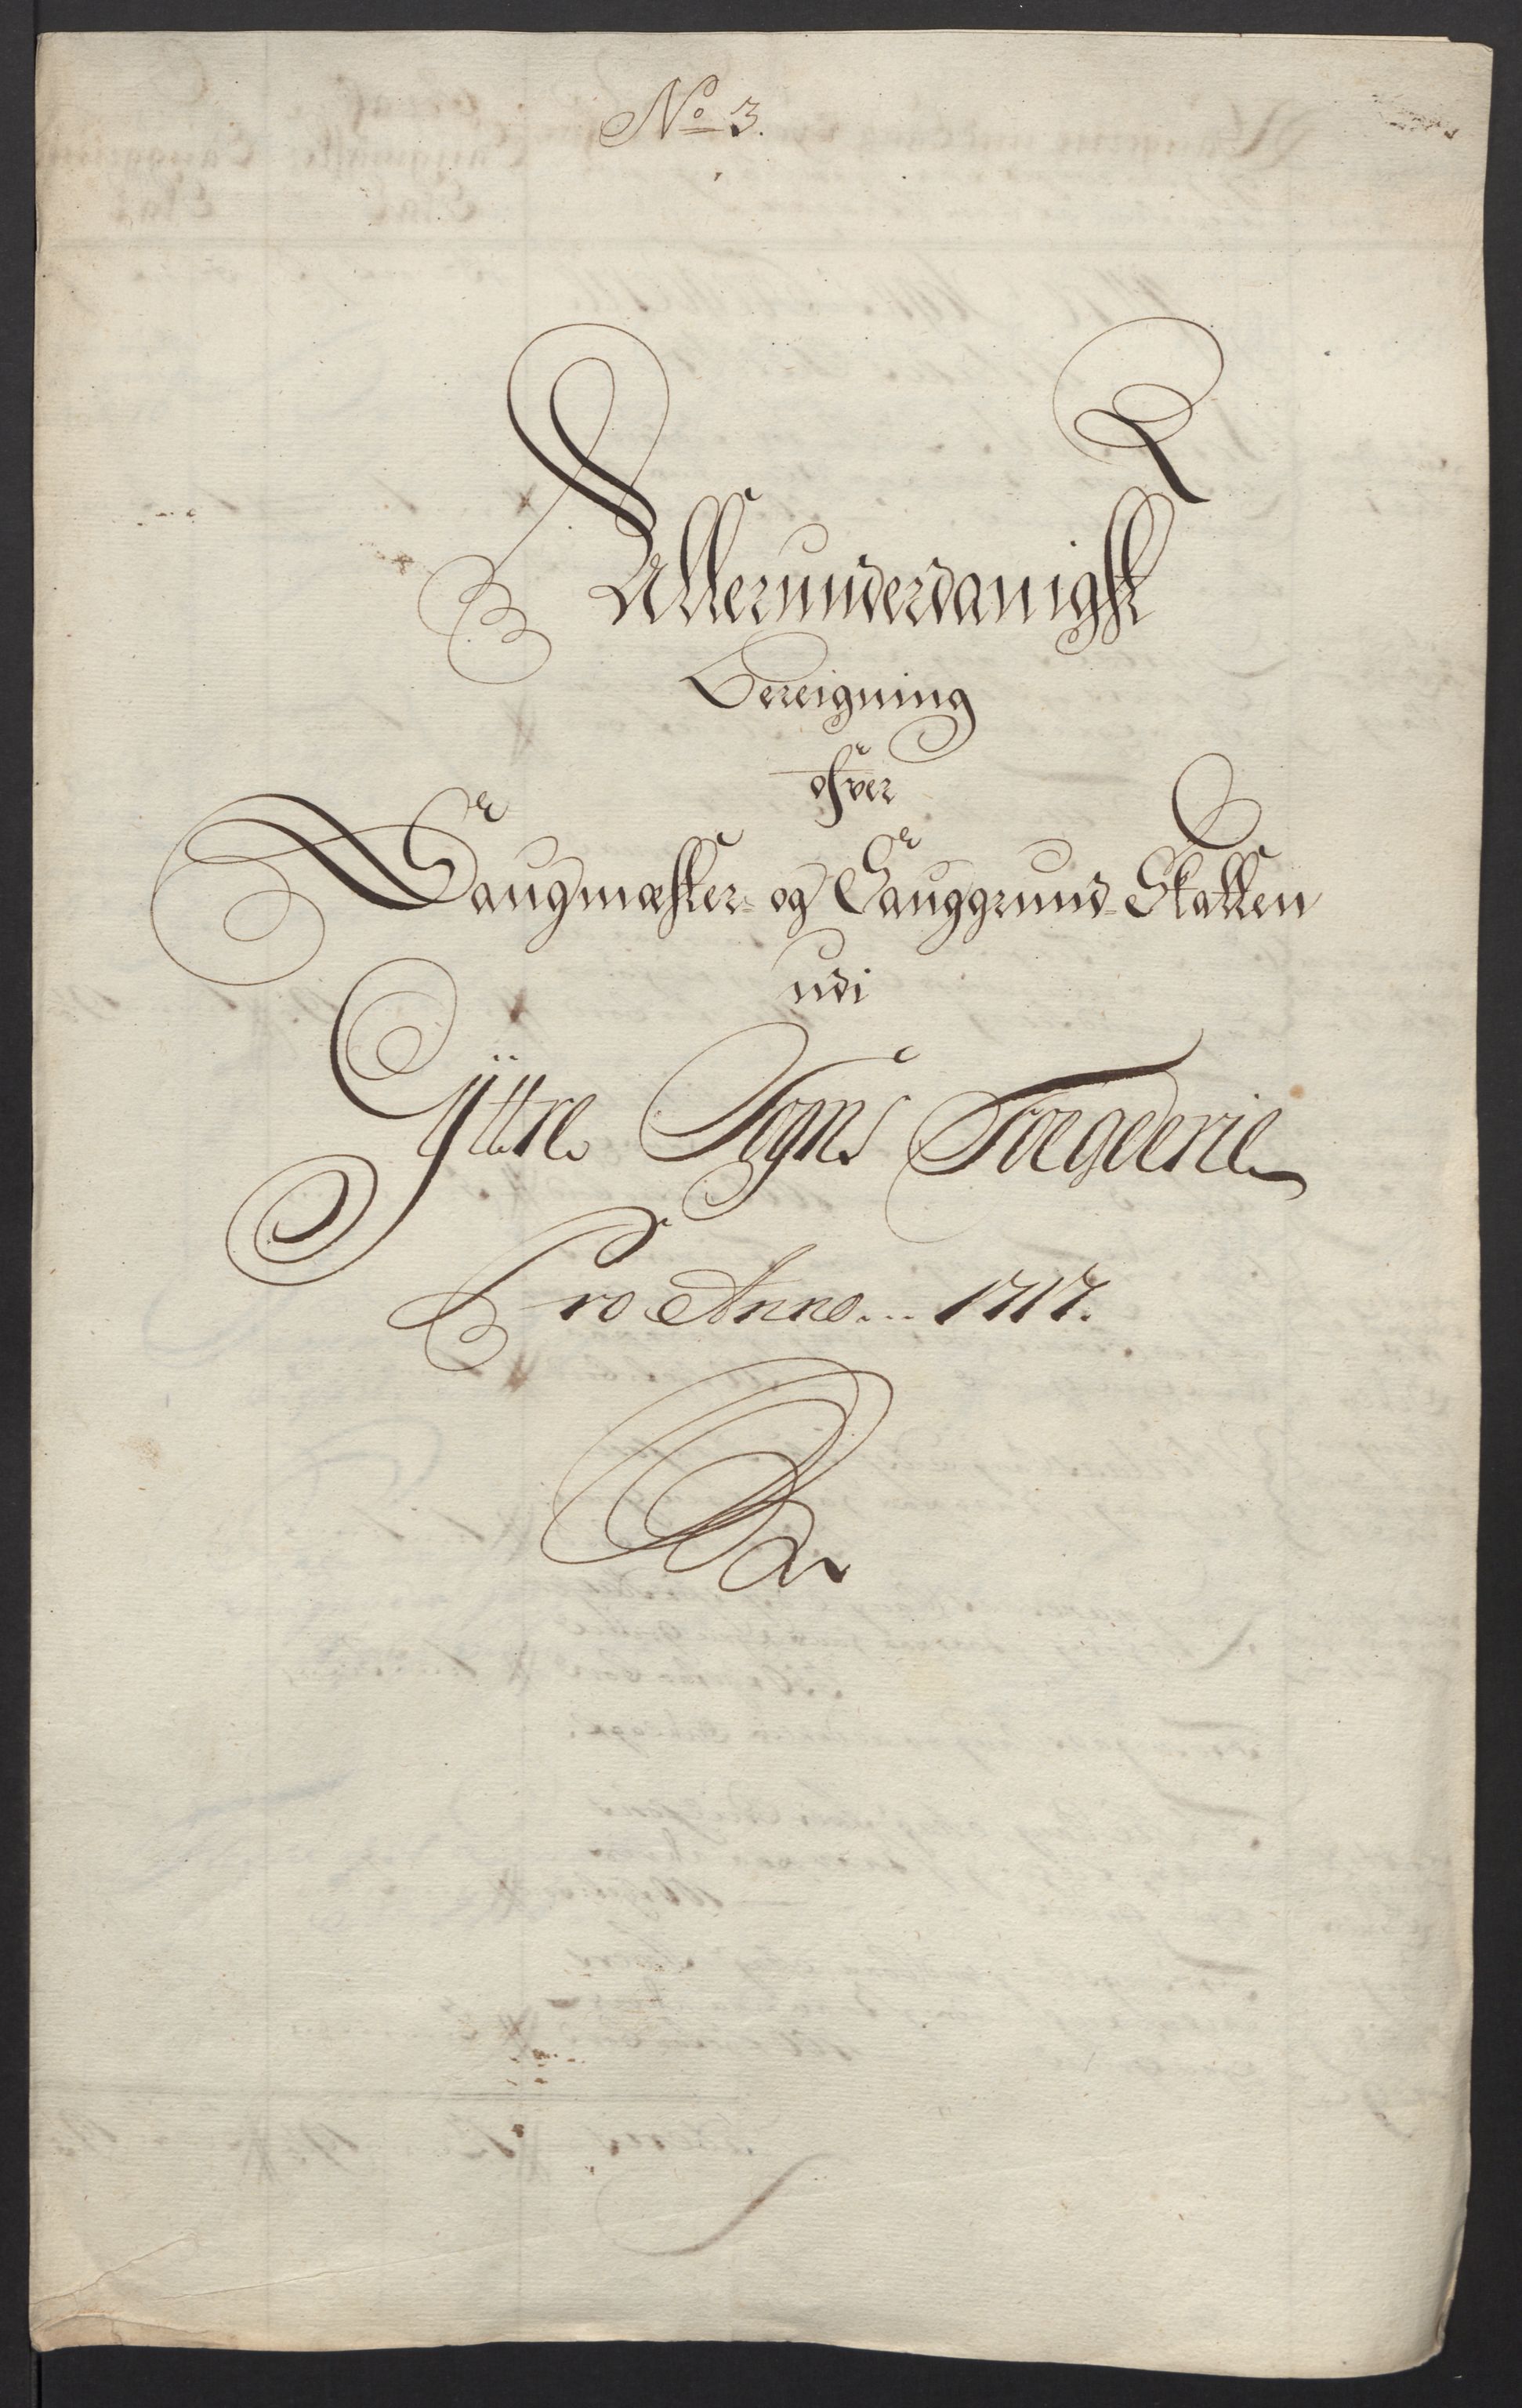 No 3.
Allerunderdanigst
Bereigning
ofver
Saugmester- og Sauggrund-Skatten
udi
Ÿttre Sogns Foegderie
Pro Anno... 1717.